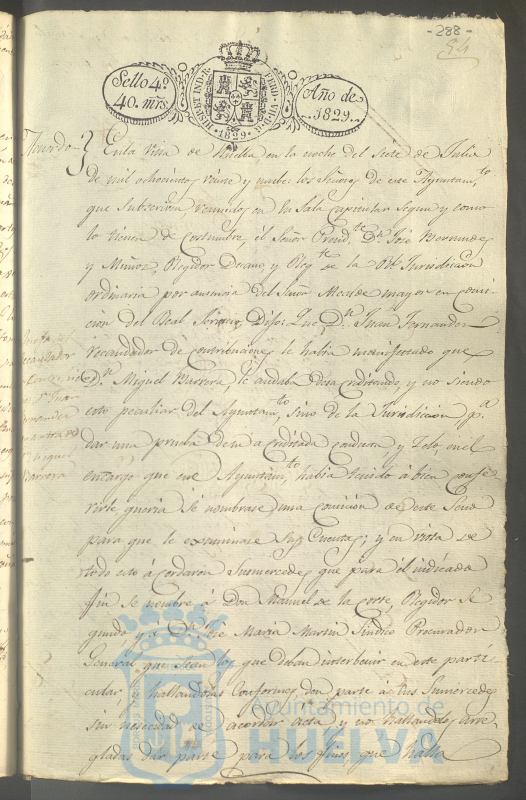 -288-
84
Sello 4º
40. mrs.
HISP. ET IND. R. FERD. VII. D. G. 1829
Año de
1829.
Acuerdo
En la Villa de Huelba en la noche del siete de Julio
de mil ochocientos veinte y nuebe: los Señores de este Ayuntam.to
que subscriven reunidos en la Sala Capitular segun y como
lo tienen de costumbre, el Señor Presid.te D.n José Bermudez
y Muñoz, Regidor Decano, y Reg.te de la R.l Jurisdiccion
ordinaria por ausencia del Señor Alcalde mayor en comi-
cion del Real Servicio, Dijo: Que D.n Juan Fernandez
recaudador de contribuciones le habia manifestado que
D.n Miguel Barrera, le andaba desacreditando, y no siendo
esto peculiar del Ayuntam.to, sino de la Jurisdiccion p.a
dar una prueba de su acreditada conducta, y celo, en el
encargo que ese Ayuntam.to habia tenido á bien confe-
rirle, queria se nombrase una comicion de este Seno
para que le examinase sus Cuentas; y en vista de
todo esto acordaron Susmercedes que para el indicado
fin se nombre á Don Manuel de la Corte, Regidor Se-
gundo y á D.n José Maria Martin Sindico Procurador
General que sean los que deban interbenir en este parti-
cular, y hallandolas Conformes, don parte á sus Sumercedes
sin necesidad de acordar acta y no hallandolas arre-
gladas dar parte para los fines que halla
Recaudador
D.n Juan
Fernandez
Miguel
Barrera
Ayuntamiento de
HUELVA